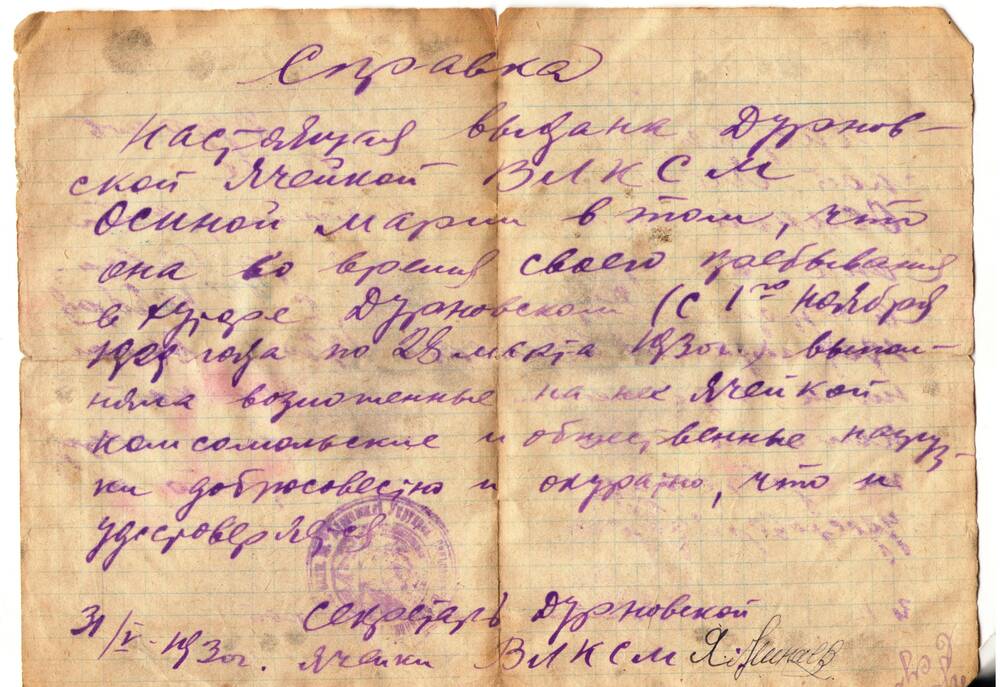 Справка
Настоящая выдана Дурнов-
ской ячейкой ВЛКСМ
Осиной Марии в том, что
она во время своего пребывания
в хуторе Дурновском (с 1го ноября
1929 года по 28 марта 1930г.) выпол-
няла возложенные на нее ячейкой
комсомольские и общественные нагруз-
ки добросовестно и окуратно, что и
удостоверяется
31/V-1930г. Секретарь Дурновской
ячейки ВЛКСМ